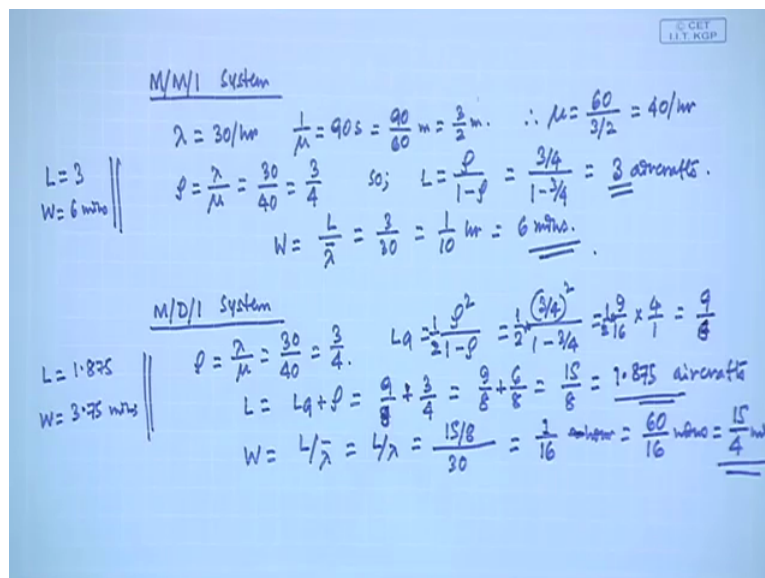 © CET
I.I.T. KGP
M/M/1 System
λ = 30/hr 1/μ = 90s = 90/60 m = 3/2 m. ∴ μ = 60/3/2 = 40/hr
L = 3
W = 6 mins
ρ = λ/μ = 30/40 = 3/4 so; L = ρ/1-ρ = 3/4/1-3/4 = 3 aircrafts.
W = L/λ̄ = 3/30 = 1/10 hr = 6 mins.
M/D/1 System
ρ = λ/μ = 30/40 = 3/4. Lq = 1/2 ρ²/1-ρ = 1/2 × (3/4)²/1-3/4 = 1/2 9/16 × 4/1 = 9/8
L = 1.875
W = 3.75 mins
L = Lq + ρ = 9/8 + 3/4 = 9/8 + 6/8 = 15/8 = 1.875 aircrafts
W = L/λ̄ = L/λ = 15/8/30 = 1/16 hour = 60/16 mins = 15/4 m